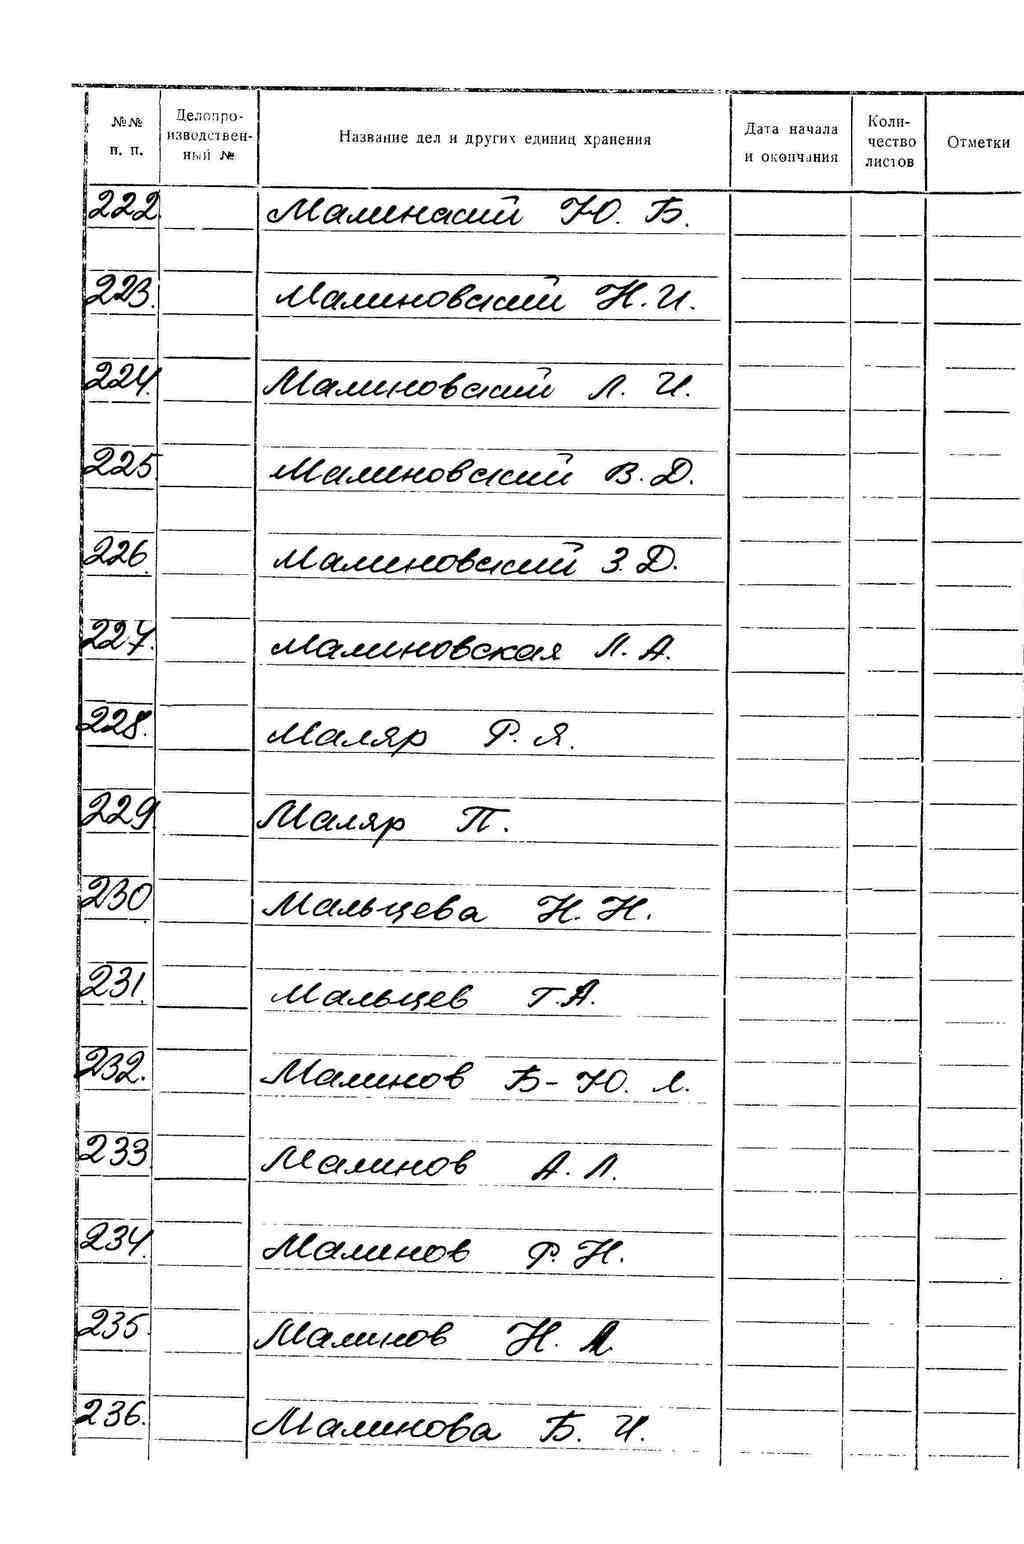 №№ п. п. Делопро-изводствен-ный № Название дел и других единиц хранения Дата начала и окончания Коли-чество листов Отметки
222. Малинский Ю. Б.
223. Малиновский Н. И.
224. Малиновский Л. И.
225. Малиновский В. Д.
226. Малиновский З. Д.
227. Малиновская Л. А.
228. Маляр Р. Я.
229 Маляр П.
230 Мальцева Н. Н.
231. Мальцев Г. А.
232. Малинов Б-Ю. Л.
233 Малинов А. Л.
234. Малинов Р. Н.
235. Малинов Н.
236. Малинова Б. И.